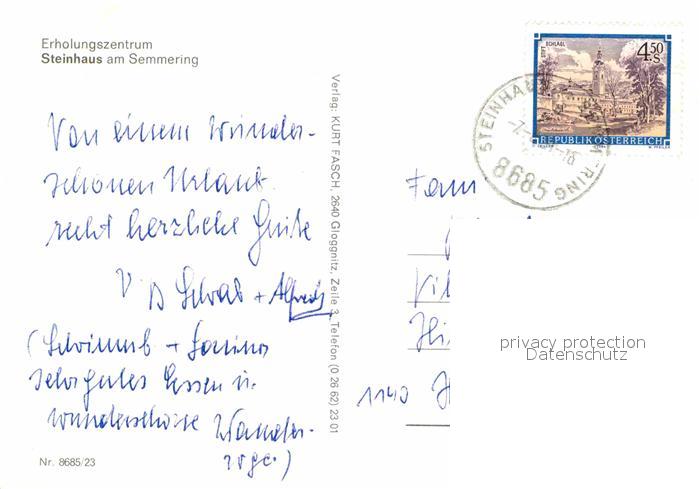 Erholungszentrum
Steinhaus am Semmering
Von einem wunder-
schönen Urlaub
recht herzliche Grüße
+ Alfred
(Schwimmb + Sauna
sehr gutes Essen u.
wunderschöne Wander-
wege.)
Nr. 8685/23
Verlag: KURT FASCH, 2640 Gloggnitz, Zeile 3, Telefon (0 26 62) 23 01
STIFT
SCHLÄGL
4.50
S
REPUBLIK ÖSTERREICH
STEINHAUS
8685
Fam
1140
privacy protection
Datenschutz